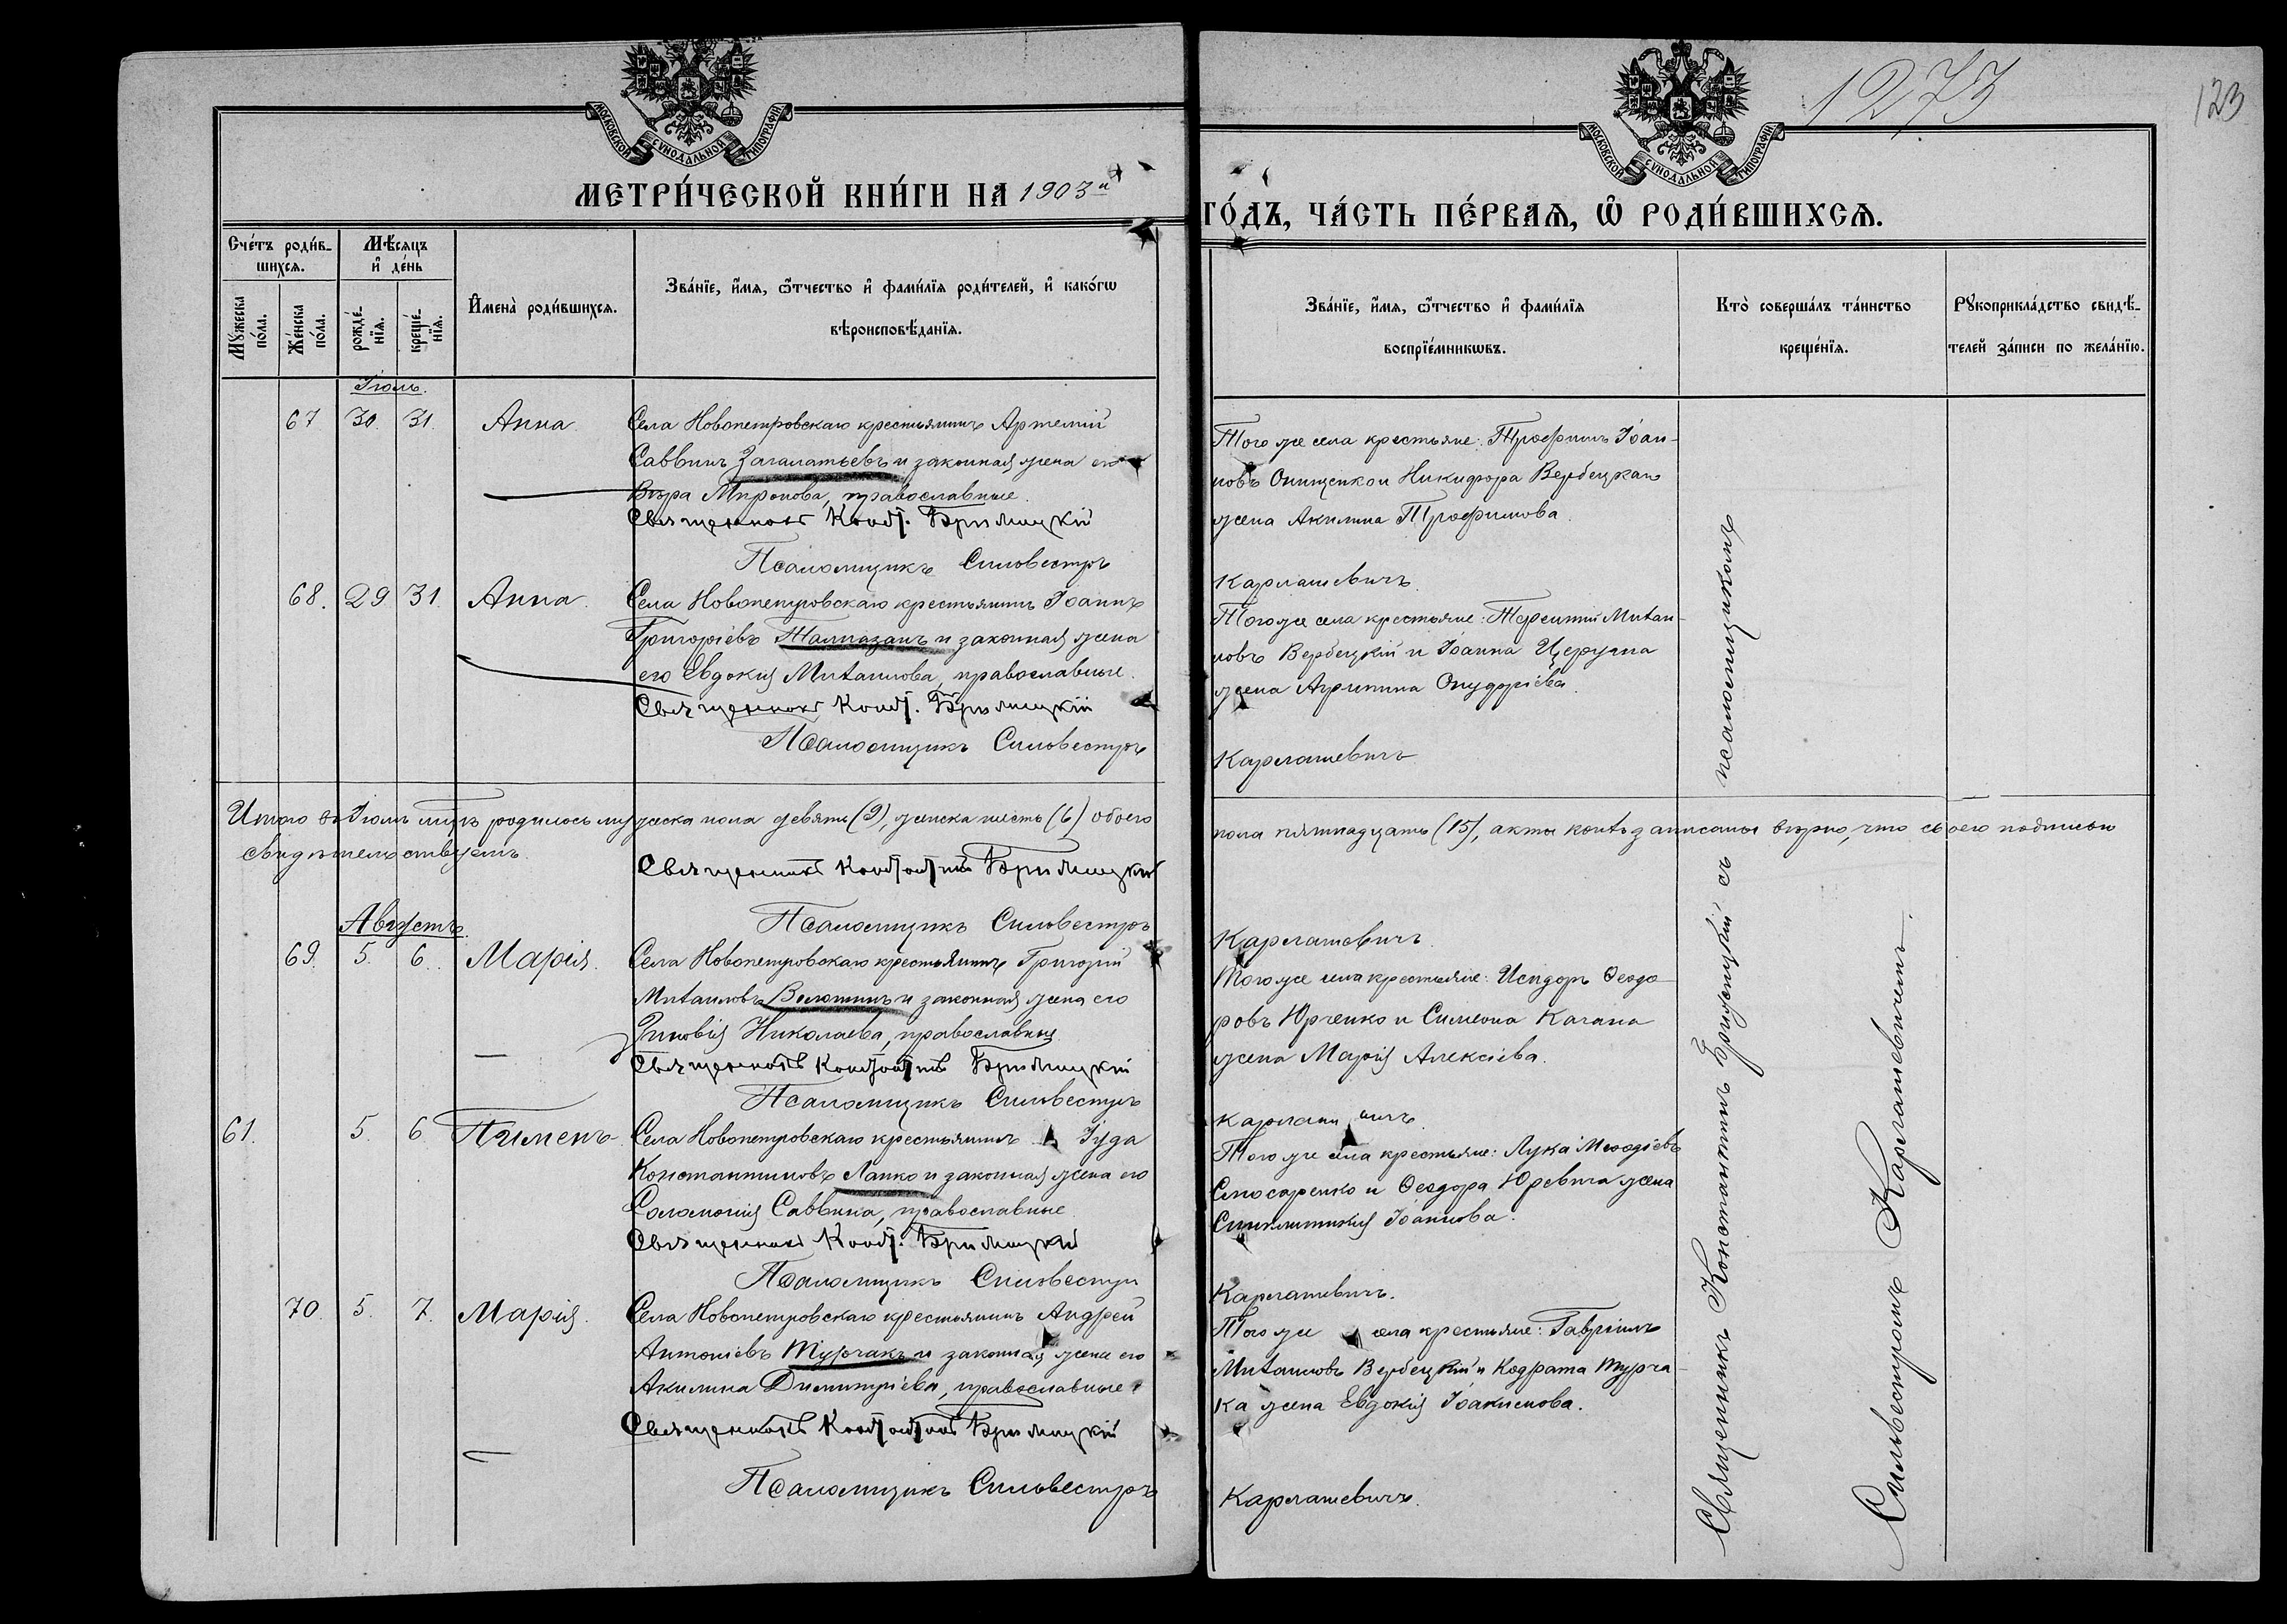 МОСКОВСКОЙ СУНОДАЛЬНОЙ ТИПОГРАФІИ
МОСКОВСКОЙ СУНОДАЛЬНОЙ ТИПОГРАФІИ
1273
123
МЕТРИ́ЧЕСКОЙ КНИ́ГИ НА 1903й
ГО́ДЪ, ЧА́СТЬ ПЕ́РВАЯ, Ѡ҆ РОДИ́ВШИХСЯ.
Сче́тъ роди́в-
шихся.
Мѣ́сяцъ
и҆ де́нь
Мꙋ́жеска по́ла.
Же́нска по́ла.
рожде́-нїя.
креще́-нїя.
И҆мена̀ роди́вшихся.
Зва́нїе, и҆́мя, ѻ҆́тчество и҆ фами́лїя роди́телей, и҆ како́гѡ
вѣроисповѣ́данїя.
Зва́нїе, и҆́мя, ѻ҆́тчество и҆ фами́лїя
воспрїе́мникѡвъ.
Кто̀ соверша́лъ та́инство
креще́нїя.
Рꙋкоприкла́дство свидѣ́-
телей за́писи по жела́нїю.
Іюль.
67 30. 31. Анна. Села Новопетровскаго крестьянинъ Артемій
Саввинъ и законная жена его
Вѣра Миронова, православные.
Священникъ Конст.
Псаломщикъ Сильвестръ
Того же села крестьяне: Трофимъ Іоан-
новъ Онищенко и Никифора Вербецкаго
жена Акилина Трофимова.
Карлашевичъ.
68. 29 31. Анна. Села Новопетровскаго крестьянинъ Іоаннъ
Григоріевъ Талмазанъ и законная жена
его Евдокія Михаилова, православные.
Священникъ Конст.
Псаломщикъ Сильвестръ
Того же села крестьяне: Терентій Михаи-
ловъ Вербецкій и Іоанна
жена Агрипина
Карлашевичъ
Итого въ Іюлѣ мцѣ родилось мужеска пола девять (9), женска шесть (6) обоего
пола пятнадцать (15), акты коихъ записаны вѣрно, что своею подписью
свидѣтельствуемъ.
Священникъ Константинъ
Псаломщикъ Сильвестръ
Карлашевичъ.
Августъ.
69. 5. 6. Марія. Села Новопетровскаго крестьянинъ Григорій
Михаиловъ Волошинъ и законная жена его
Зиновія Николаева, православные.
Священникъ Константинъ
Псаломщикъ Сильвестръ
Того же села крестьяне: Исидоръ Ѳеодо-
ровъ Юрченко и Симеона Качана
жена Марія Алексіева.
61. 5. 6 Пименъ. Села Новопетровскаго крестьянинъ Іуда
Константиновъ Лапко и законная жена его
Соломонія Саввина, православные.
Священникъ Конст.
Псаломщикъ Сильвестръ
Того же села крестьяне: Лука Меѳодіевъ
Слюсаренко и Ѳеодора Юревича жена
Синклитикія Іоаннова.
Карлашевичъ.
70. 5. 7. Марія. Села Новопетровскаго крестьянинъ Андрей
Антоніевъ Турчакъ и законная жена его
Акилина Димитріева, православные.
Священникъ Константинъ
Псаломщикъ Сильвестръ
Того же села крестьяне: Гавріилъ
Михаиловъ Вербецкій и Кодрата Турча-
ка жена Евдокія Іоакимова.
Карлашевичъ.
Священникъ Константинъ съ псаломщикомъ
Сильвестромъ Карлашевичемъ.